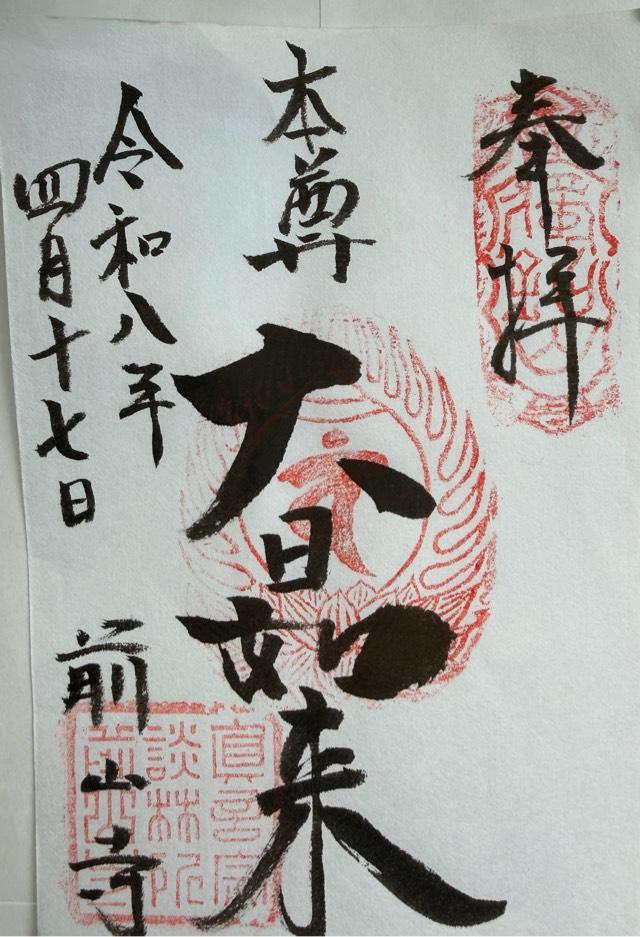 奉拝
本尊
大日如来
令和八年
四月十七日
前山寺
真言宗
談林所
前山寺